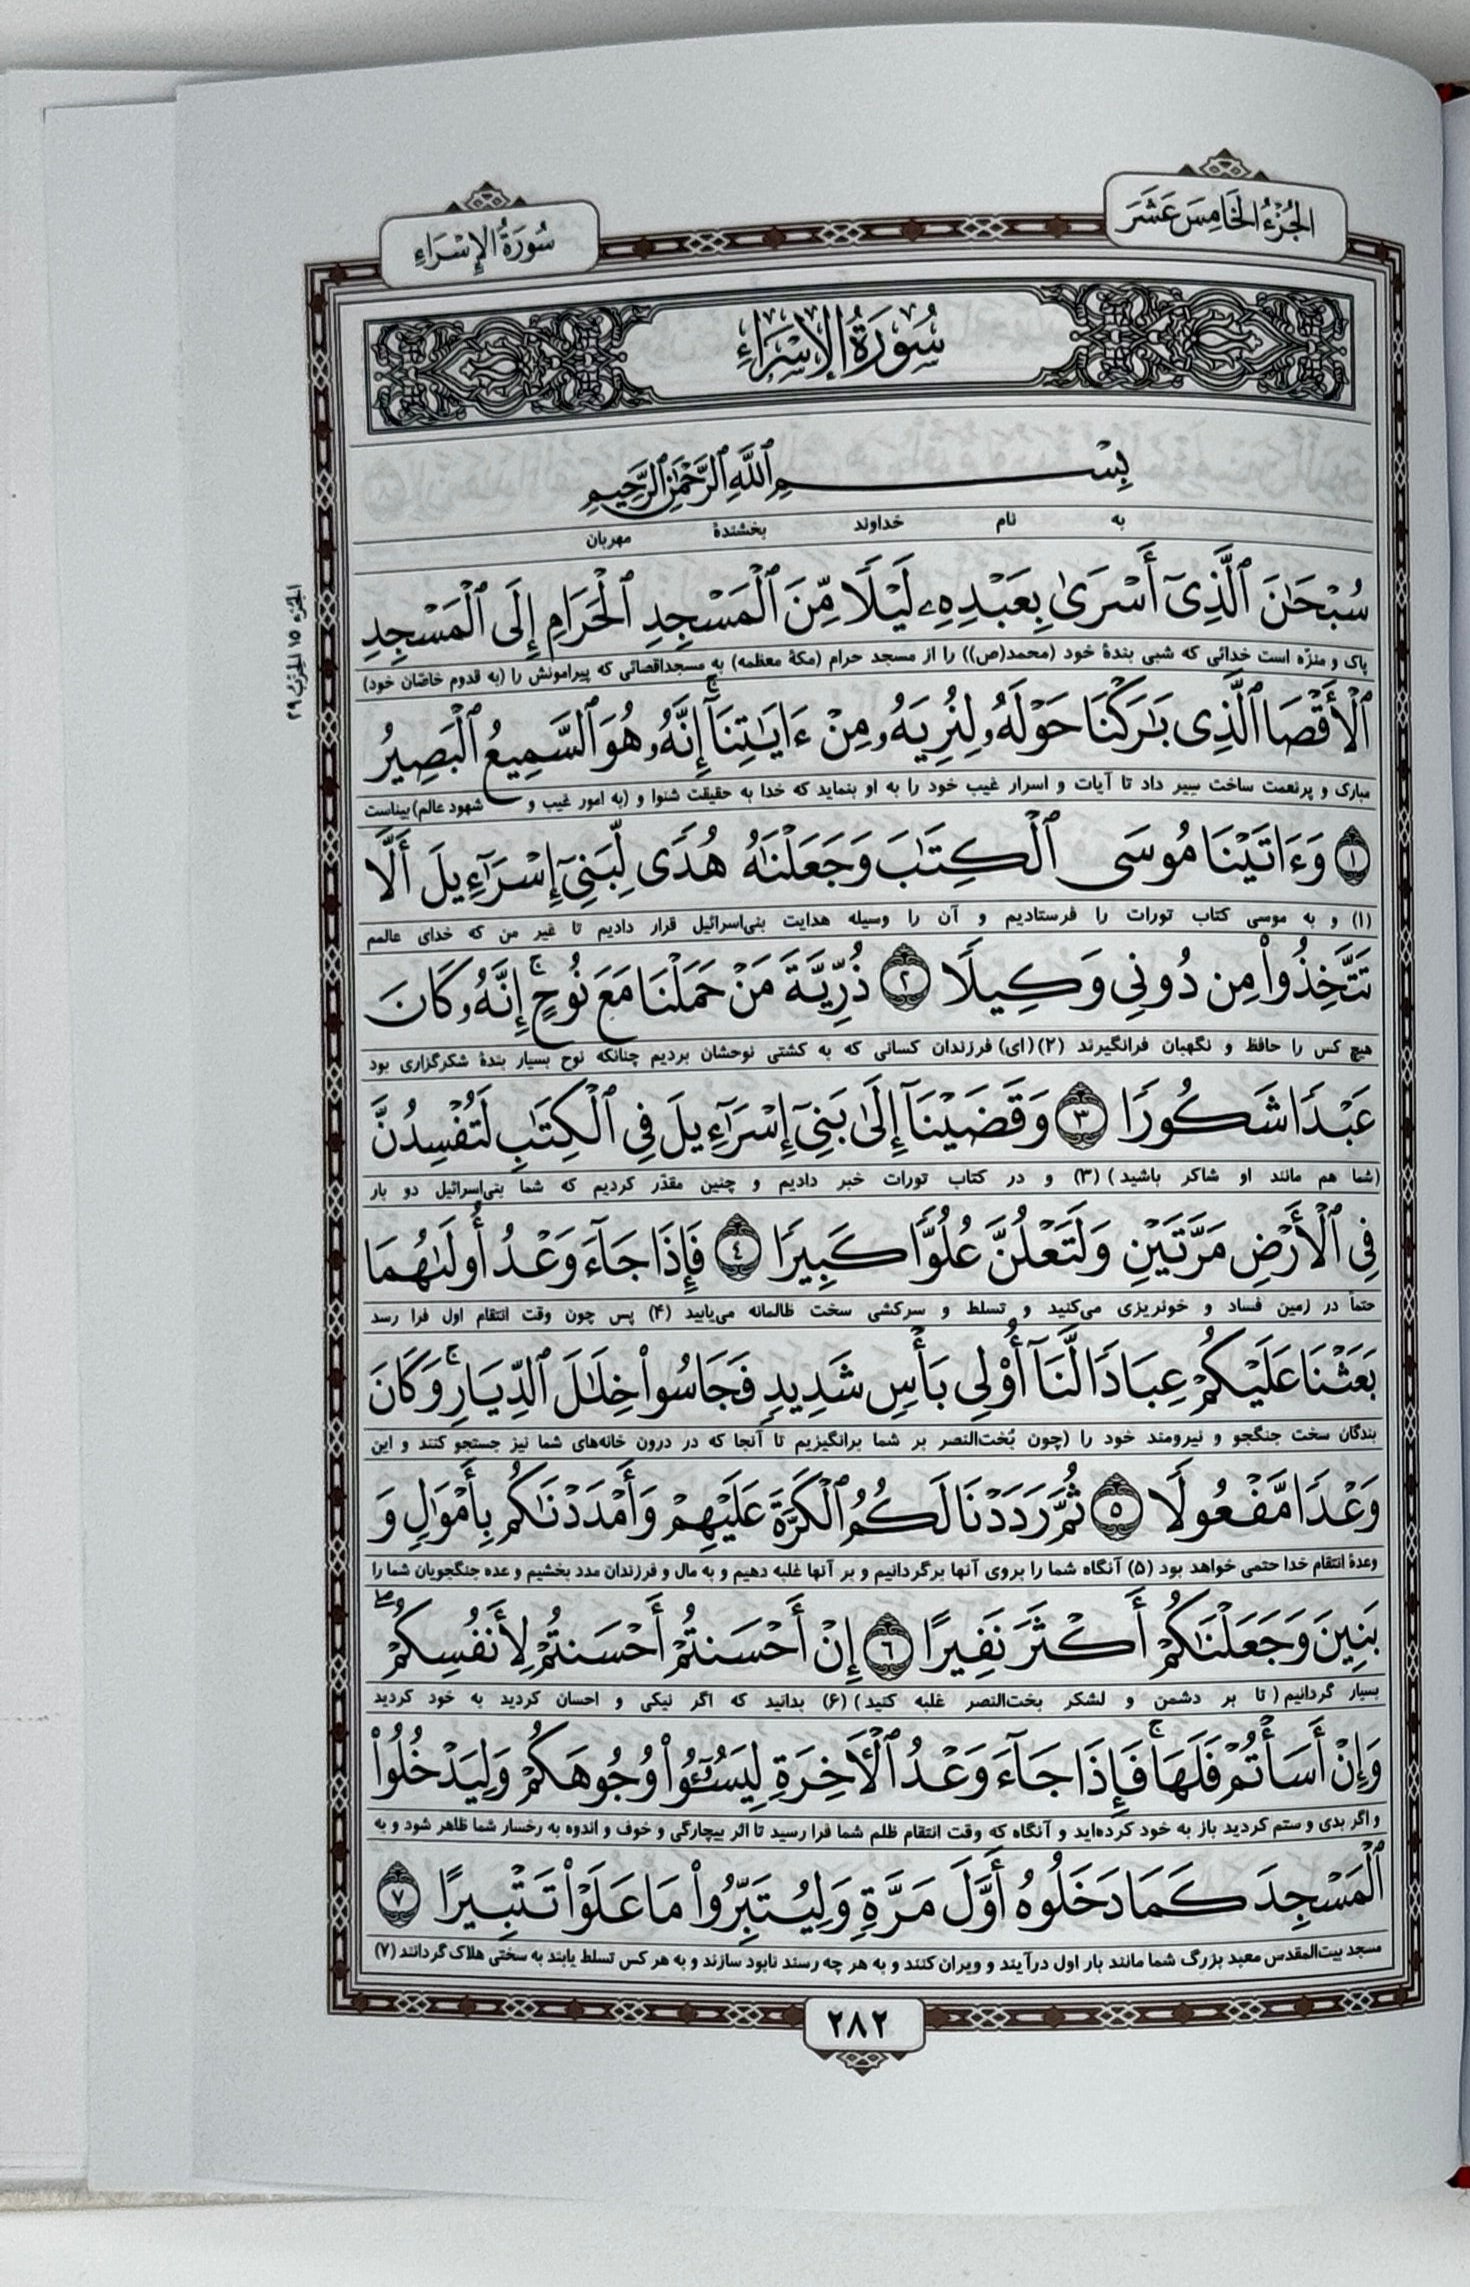 الجُزْءُ الخَامِسَ عَشَرَ
سُورَةُ الإِسْرَاءِ
سُورَةُ الإِسْرَاءِ
بِسْمِ ٱللَّهِ ٱلرَّحْمَٰنِ ٱلرَّحِيمِ
به نام خداوند بخشندهٔ مهربان
سُبْحَٰنَ ٱلَّذِىٓ أَسْرَىٰ بِعَبْدِهِۦ لَيْلًا مِّنَ ٱلْمَسْجِدِ ٱلْحَرَامِ إِلَى ٱلْمَسْجِدِ
پاک و منزّه است خدائی که شبی بندهٔ خود (محمد(ص)) را از مسجد حرام (مکهٔ معظمه) به مسجداقصائی که پیرامونش را (به قدوم خاصّان خود)
ٱلْأَقْصَا ٱلَّذِى بَٰرَكْنَا حَوْلَهُۥ لِنُرِيَهُۥ مِنْ ءَايَٰتِنَآ ۚ إِنَّهُۥ هُوَ ٱلسَّمِيعُ ٱلْبَصِيرُ
مبارک و پرنعمت ساخت سیر داد تا آیات و اسرار غیب خود را به او بنماید که خدا به حقیقت شنوا و (به امور غیب و شهود عالم) بیناست
١ وَءَاتَيْنَا مُوسَى ٱلْكِتَٰبَ وَجَعَلْنَٰهُ هُدًى لِّبَنِىٓ إِسْرَٰٓءِيلَ أَلَّا
(۱) و به موسی کتاب تورات را فرستادیم و آن را وسیله هدایت بنی‌اسرائیل قرار دادیم تا غیر من که خدای عالمم
تَتَّخِذُوا۟ مِن دُونِى وَكِيلًا ٢ ذُرِّيَّةَ مَنْ حَمَلْنَا مَعَ نُوحٍ ۚ إِنَّهُۥ كَانَ
هیچ کس را حافظ و نگهبان فرانگیرند (۲) (ای) فرزندان کسانی که به کشتی نوحشان بردیم چنانکه نوح بسیار بندهٔ شکرگزاری بود
عَبْدًا شَكُورًا ٣ وَقَضَيْنَآ إِلَىٰ بَنِىٓ إِسْرَٰٓءِيلَ فِى ٱلْكِتَٰبِ لَتُفْسِدُنَّ
(شما هم مانند او شاکر باشید) (۳) و در کتاب تورات خبر دادیم و چنین مقدّر کردیم که شما بنی‌اسرائیل دو بار
فِى ٱلْأَرْضِ مَرَّتَيْنِ وَلَتَعْلُنَّ عُلُوًّا كَبِيرًا ٤ فَإِذَا جَآءَ وَعْدُ أُولَىٰهُمَا
حتماً در زمین فساد و خونریزی می‌کنید و تسلط و سرکشی سخت ظالمانه می‌یابید (۴) پس چون وقت انتقام اول فرا رسد
بَعَثْنَا عَلَيْكُمْ عِبَادًا لَّنَآ أُو۟لِى بَأْسٍ شَدِيدٍ فَجَاسُوا۟ خِلَٰلَ ٱلدِّيَارِ ۚ وَكَانَ
بندگان سخت جنگجو و نیرومند خود را (چون بُخت‌النصر بر شما برانگیزیم تا آنجا که در درون خانه‌های شما نیز جستجو کنند و این
وَعْدًا مَّفْعُولًا ٥ ثُمَّ رَدَدْنَا لَكُمُ ٱلْكَرَّةَ عَلَيْهِمْ وَأَمْدَدْنَٰكُم بِأَمْوَٰلٍ وَ
وعدهٔ انتقام خدا حتمی خواهد بود (۵) آنگاه شما را بروی آنها برگردانیم و بر آنها غلبه دهیم و به مال و فرزندان مدد بخشیم و عده جنگجویان شما را
بَنِينَ وَجَعَلْنَٰكُمْ أَكْثَرَ نَفِيرًا ٦ إِنْ أَحْسَنتُمْ أَحْسَنتُمْ لِأَنفُسِكُمْ ۖ
بسیار گردانیم (تا بر دشمن و لشکر بخت‌النصر غلبه کنید) (۶) بدانید که اگر نیکی و احسان کردید به خود کردید
وَإِنْ أَسَأْتُمْ فَلَهَا ۚ فَإِذَا جَآءَ وَعْدُ ٱلْـَٔاخِرَةِ لِيَسُـۥٓـُٔوا۟ وُجُوهَكُمْ وَلِيَدْخُلُوا۟
و اگر بدی و ستم کردید باز به خود کرده‌اید و آنگاه که وقت انتقام ظلم شما فرا رسید تا اثر بیچارگی و خوف و اندوه به رخسار شما ظاهر شود و به
ٱلْمَسْجِدَ كَمَا دَخَلُوهُ أَوَّلَ مَرَّةٍ وَلِيُتَبِّرُوا۟ مَا عَلَوْا۟ تَتْبِيرًا ٧
مسجد بیت‌المقدس معبد بزرگ شما مانند بار اول درآیند و ویران کنند و به هر چه رسند نابود سازند و به هر کس تسلط یابند به سختی هلاک گردانند (۷)
الجزء ١٥ الحزب ٢٩
٢٨٢